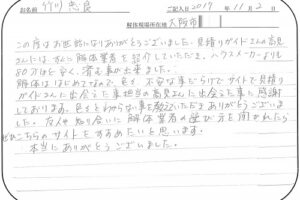 ご記入日 2017年 11月 2
解体現場所在地 大阪市
この度はお世話になりありがとうございました。見積りガイドさんの高見
さんには、さんに解体業者を紹介していただき、ハウスメーカーよりも
50万円を安く、済ます事が出来ました。
解体ははじめてなので色々不安な事だらけでサイトで見積り
ガイドさんに出会うた事担当の高見さんに出会うた事に感謝
しております。色々とわからない事を教えていただきありがとうございま
した。友人や知り合いに解体業者の選び方を聞かれたら
ぜひこちらのサイトをすすめたいと思います。
本当にありがとうございました。